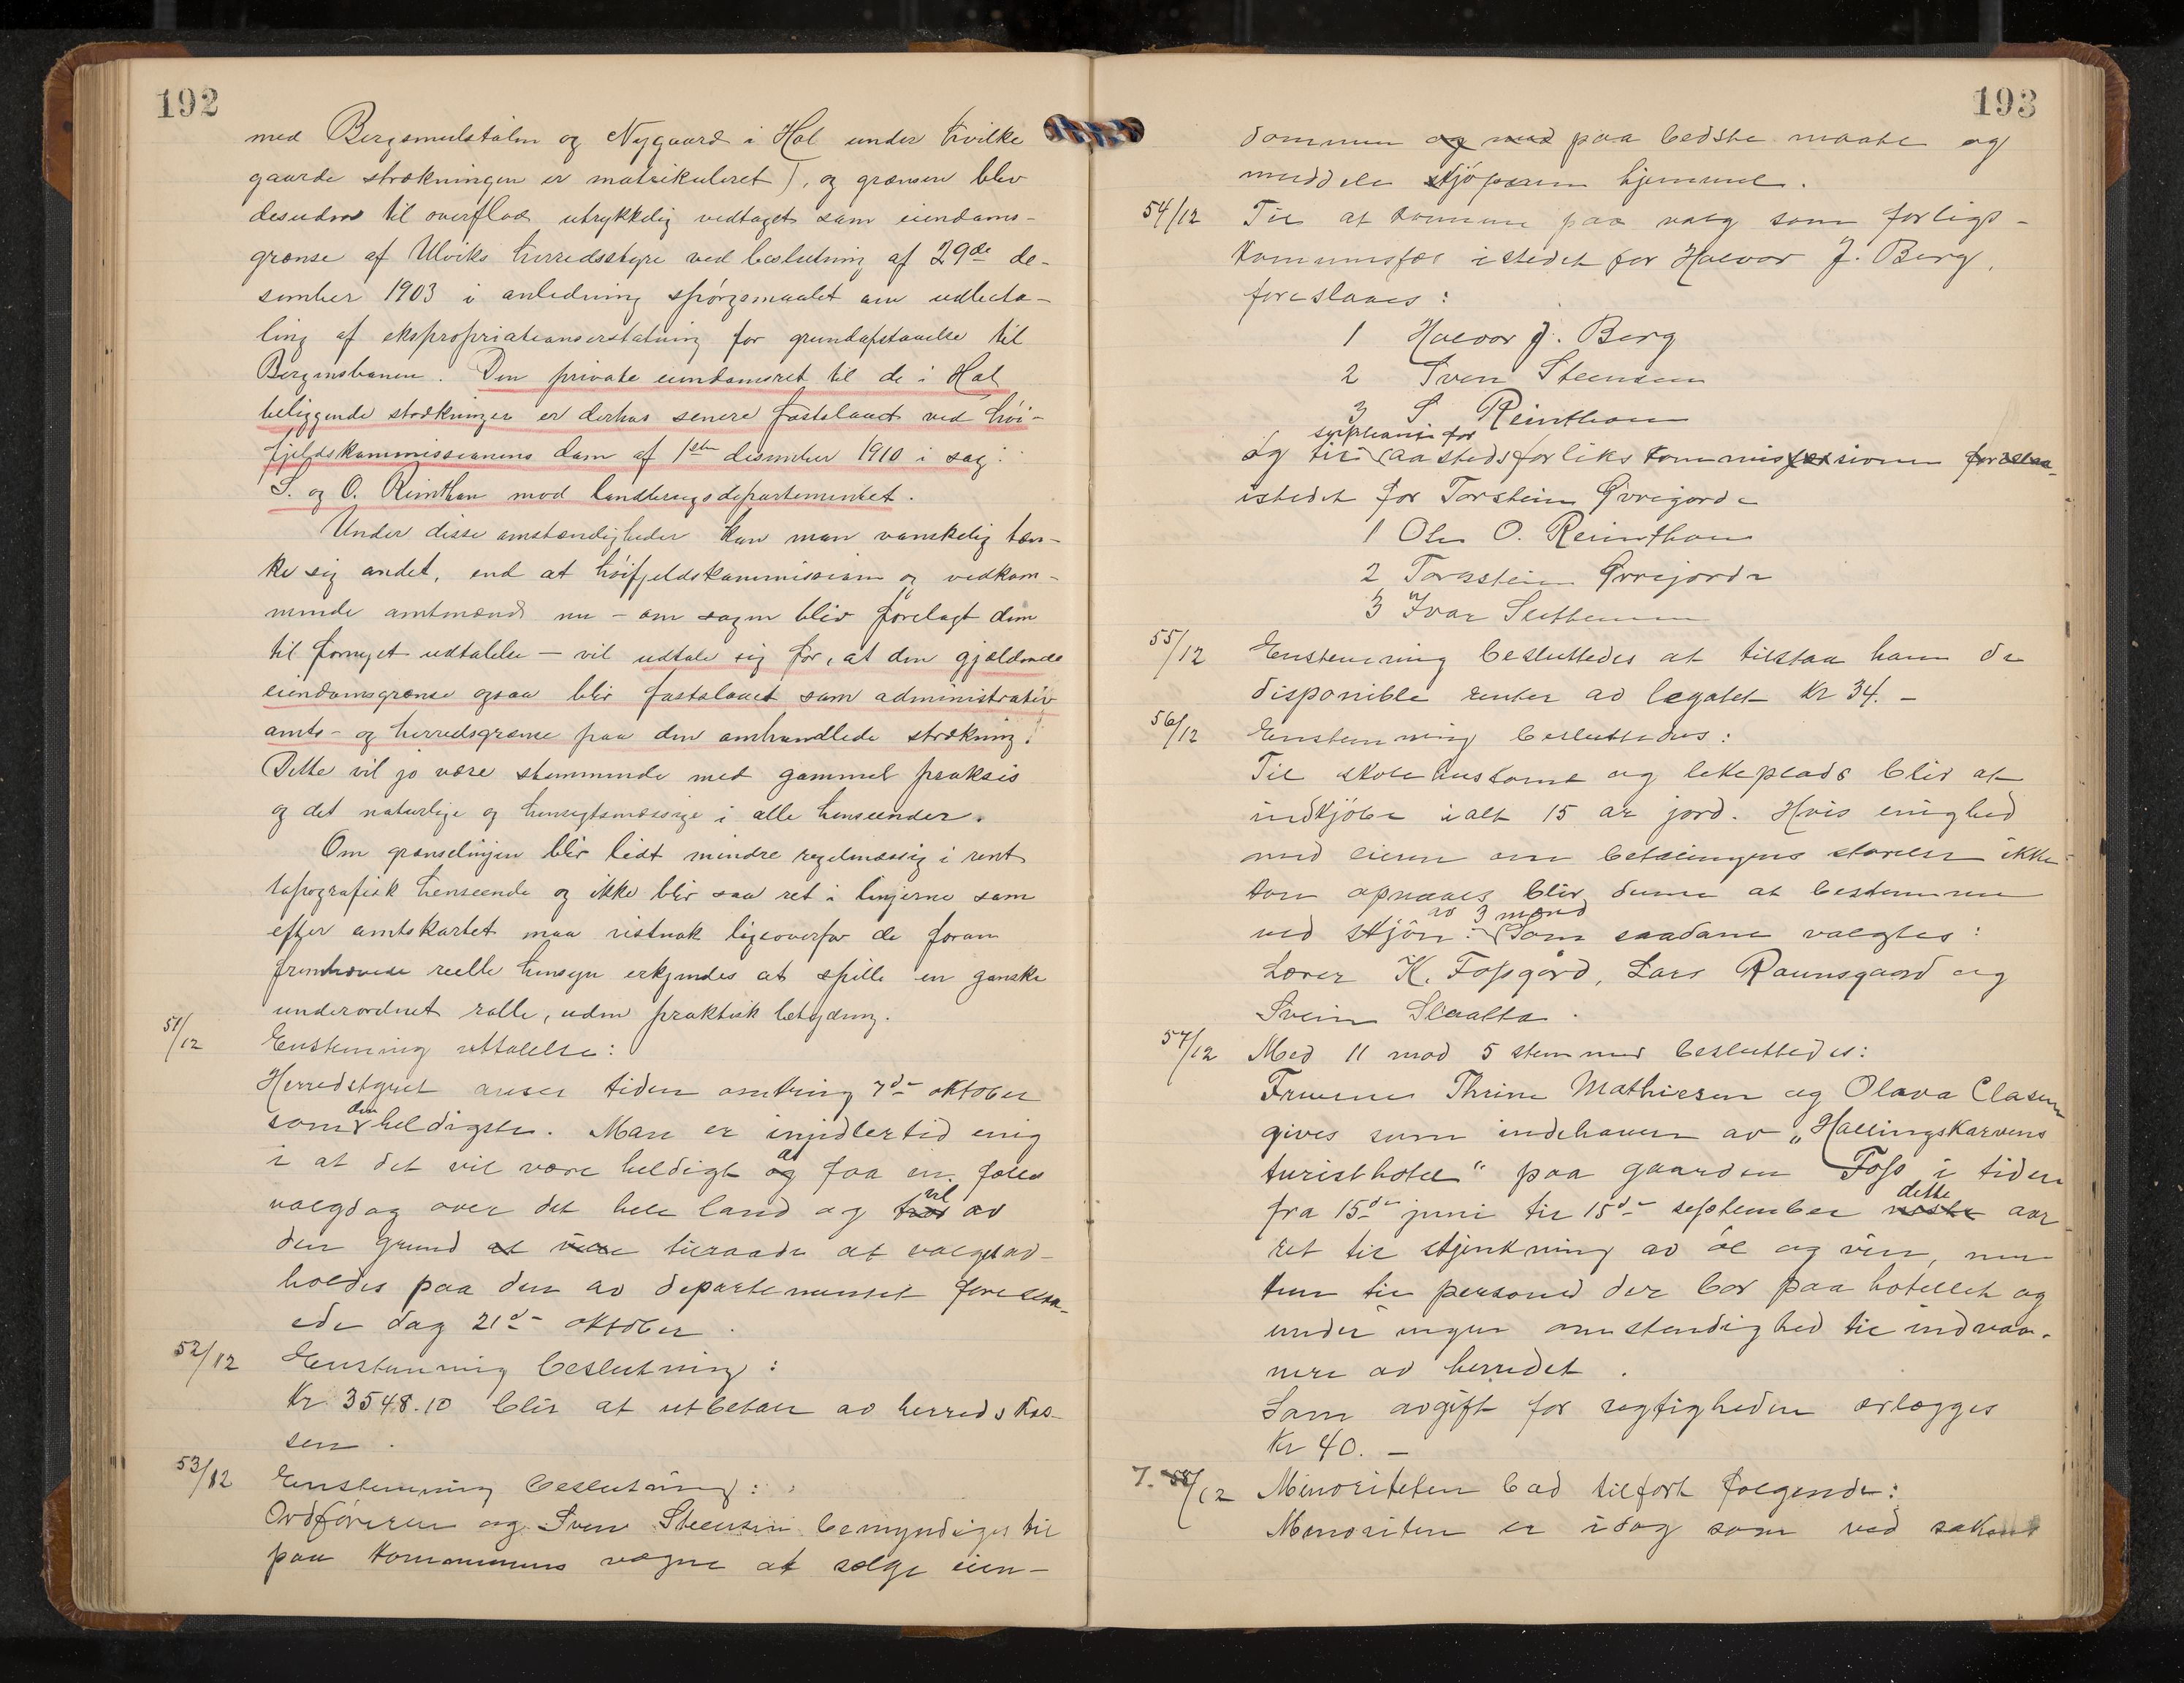 192
med Bergsmulstølen og Nygaard i Hol under hvilke
gaarde strækningen er matrikuleret), og grænsen blev
desuden til overflod utrykkelig vedtaget som eiendoms-
grænse af Ulviks herredsstyre ved beslutning af 29de de-
sember 1903 i anledning spörgsmaalet om udbeta-
ling af ekspropriationserstatning for grundafstaaelse til
Bergensbanen. Den private eiendomsret til de i Hol
beliggende strækninger er derhos senere fastslaaet ved höi-
fjeldskommissionens dom af 1ste desember 1910 i sag:
S. og O. Reinthon mod landbrugsdepartementet.
Under disse omstændigheder kan man vanskelig tæn-
ke sig andet, end at höifjeldskommissionen og vedkom-
mende amtmænd nu - om sagen blev forelagt dem
til fornyet udtalelse - vil udtale sig for, at den gjældende
eiendomsgrænse ogsaa blir fastslaaet som administrativ
amts- og herredsgrænse paa den omhandlede strækning.
Dette vil jo være stemmende med gammel praksis
og det naturlige og hensigtsmæssige i alle henseender.
Om grænselinjen blir lidt mindre regelmæssig i rent
topografisk henseende og ikke blir saa ret i linjerne som
efter amtskartet maa vistnok ligeoverfor de foran
fremhævede reelle hensyn erkjendes at spille en ganske
underordnet rolle, uden praktisk betydning.
51/12 Enstemmig uttalelse:
Herredstyret anser tiden omkring 7de oktober
som den heldigste. Man er imidlertid enig
i at det vil være heldigt og at faa en fælles
valgdag over det hele land og vil av
den grund at være tilraade at valget av-
holdes paa den av departementet foreslaa-
ede dag 21de oktober.
52/12 Enstemmig beslutning:
Kr 3548.10 blir at utbetale av herredskas-
sen.
53/12 Enstemmig beslutning:
Ordföreren og Sven Steensen bemyndiges til
paa kommunens vegne at sælge eien-
193
dommen og med paa bedste maate og
meddele skjöperen hjemmel.
54/12 Til at komme paa valg som forligs-
kommissær istedet for Halvor J. Berg,
foreslaaes:
1 Halvor J. Berg
2 Sven Steensen
3 S Reinthon
og til suppleant for aastedsforlikskommissionen foreslaa-
istedet for Torstein Øvrejorde
1 Ole O. Reinthon
2 Torstein Øvrejorde
3 Ivar Slettemoen
55/12 Enstemmig besluttedes at tilstaa ham de
disponible renter av legatet Kr 34.-
56/12 Enstemmig besluttedes:
Til skolehustomt og lekeplads blir at
indkjöbe ialt 15 ar jord. Hvis enighed
med eieren om betalingens størrelse ikke
kan opnaaes blir denne at bestemme
ved skjön av 3 mænd. Som saadane valgtes:
Lærer K. Fossgård, Lars Raunsgaard og
Svein Slaatta.
57/12 Med 11 mod 5 stemmer besluttedes:
Fruerne Thrine Mathiesen og Olava Clasen
gives som indehaver av "Hallingskarvens
turisthotel" paa gaarden Foss i tiden
fra 15de juni til 15de september næste dette aar
ret til skjenkning av öl og vin, men
kun til personer der bor paa hotellet og
under ingen omstendighed til indvaa-
nere av herredet.
Som avgift for rettigheden erlægges
Kr 40.-
7. 58/12 Minoriteten bad tilført følgende:
Minoriten er idag som ved sakens